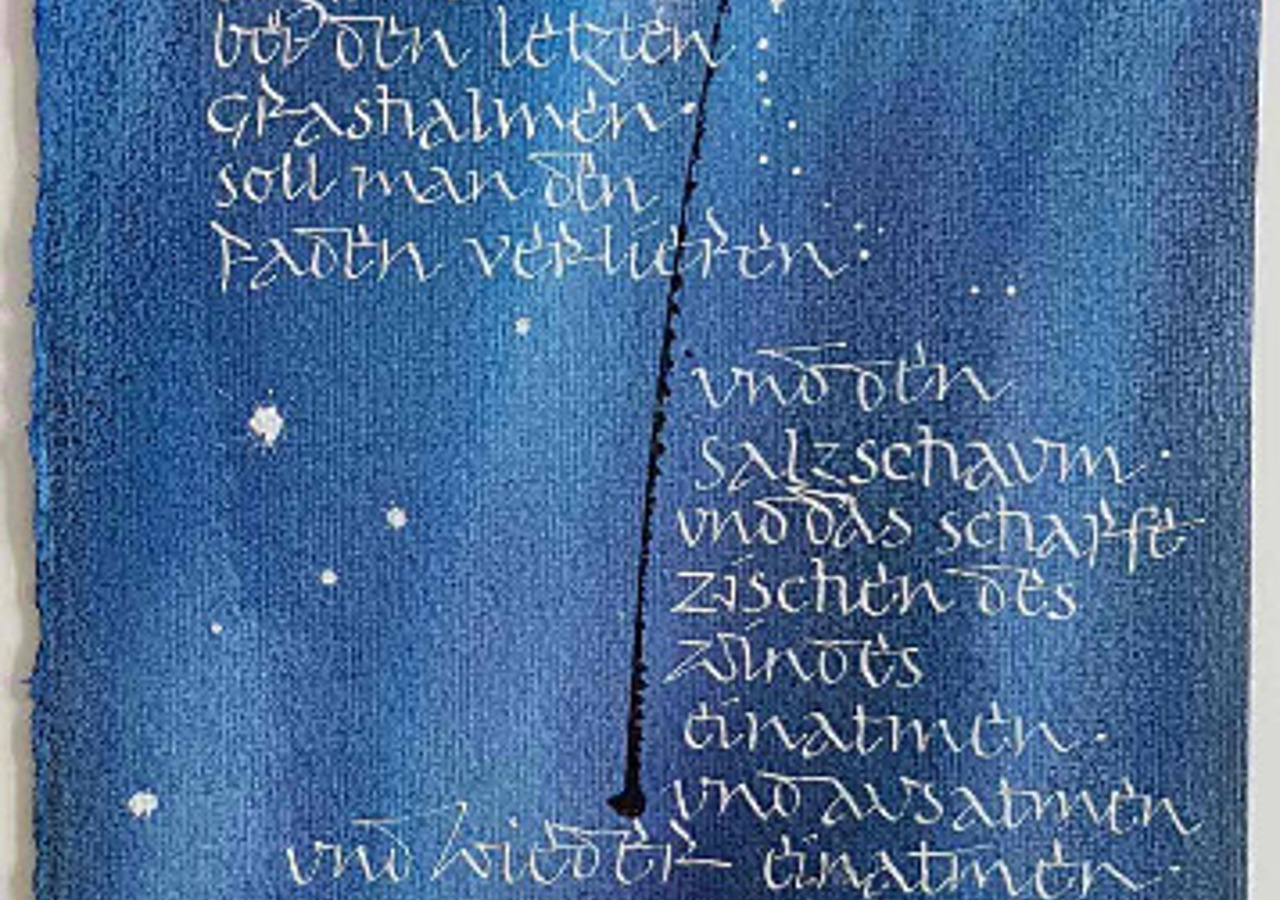 bei den letzten
Grashalmen.
soll man den
Faden verlieren.
und den
Salzschaum.
und das scharfe
zischen des
windes
einatmen.
und ausatmen
und wieder einatmen.